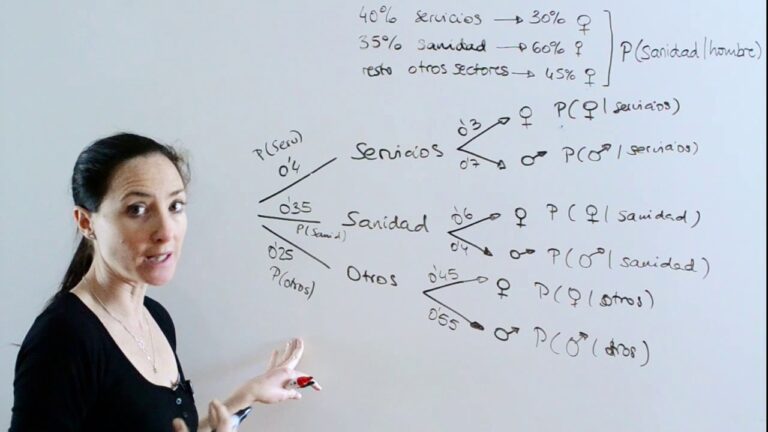 40% servicios → 30% ♀
35% sanidad → 60% ♀
resto otros sectores → 45% ♀
P(sanidad/hombre)
P(serv)
0'4
Servicios
0'3
♀ P(♀/servicios)
0'7
♂ P(♂/servicios)
0'35
P(sanid)
Sanidad
0'6
♀ P(♀/sanidad)
0'4
♂ P(♂/sanidad)
0'25
P(otros)
Otros
0'45
♀ P(♀/otros)
0'55
♂ P(♂/otros)